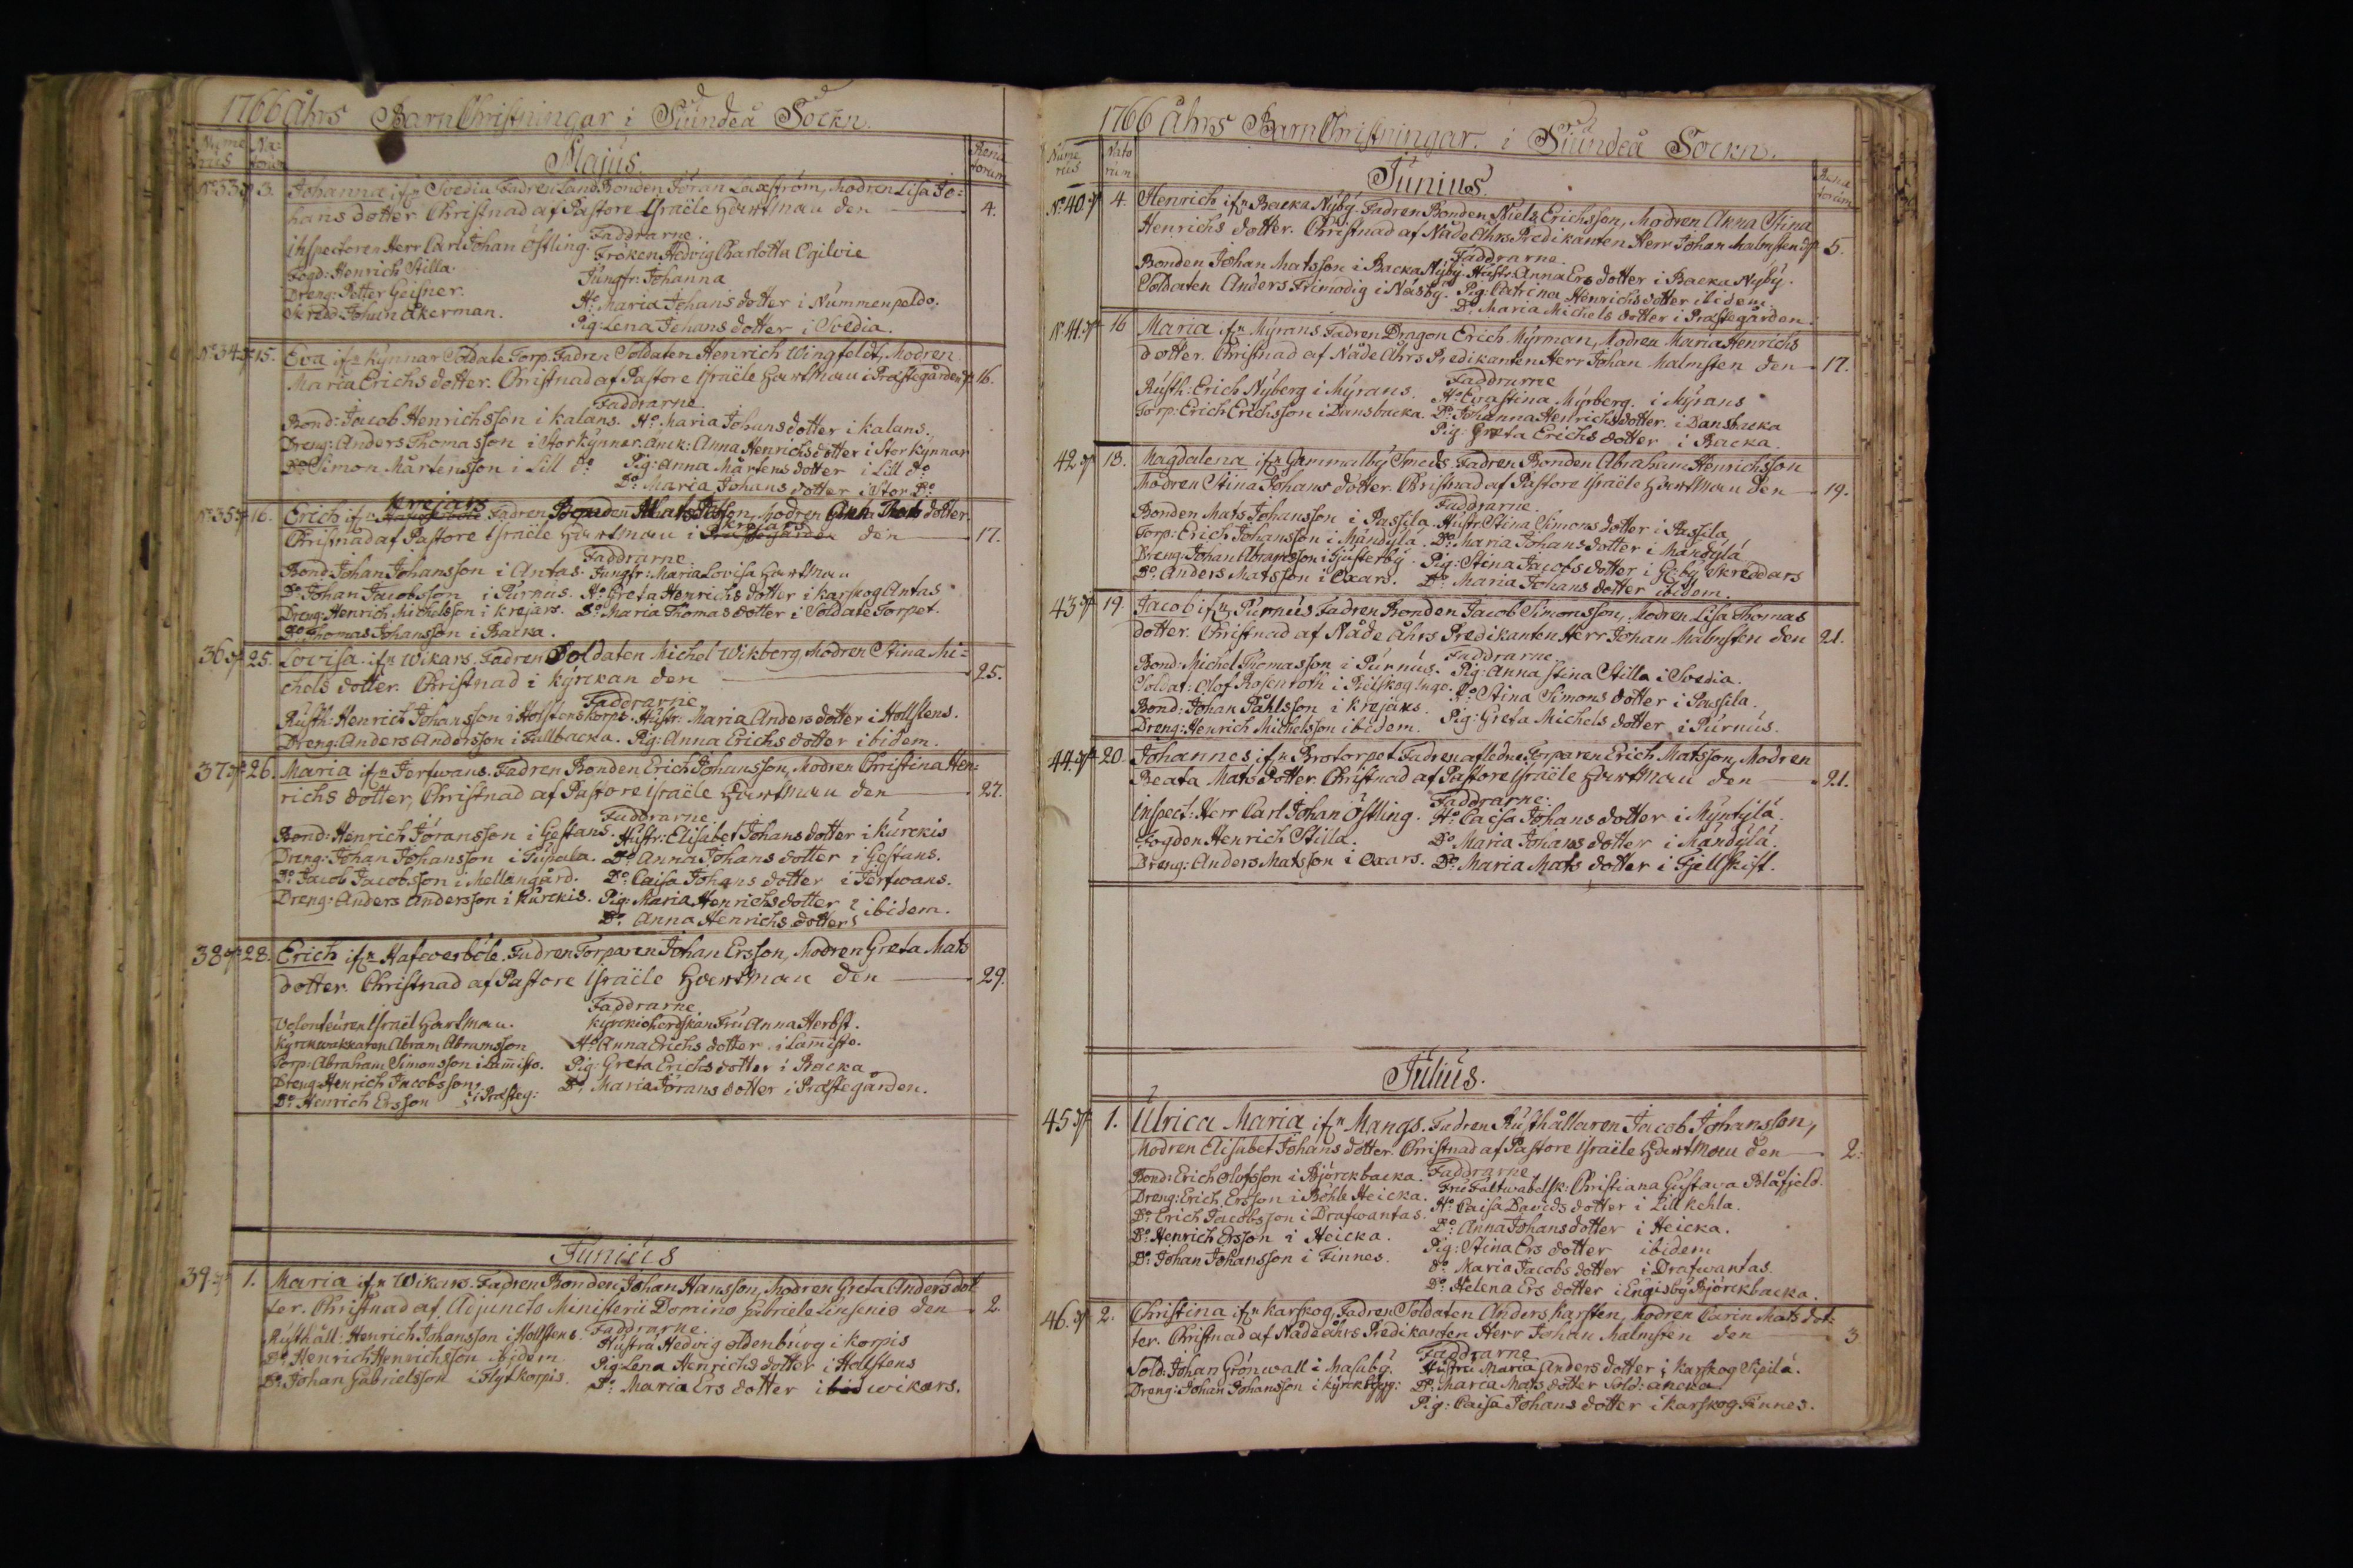 1766 Åhrs BarnChristningar i Siundeå Sockn.
Nume rus
Na= torum
Majus.
Rena torum
N:o 33 3. Johanna if:n Svedia Fadren Land Bonden Jöran Laxström, Modren Lisa Jo= 
hans dotter Christnad af Pastore Israële Hartman den 4.
Faddrarne.
Inspectoren Herr Carl Johan Östling. Fröken Hedvig Charlotta Ogilvie
Fogd: Henrich Stilla. Jungfr: Johanna
Dreng: Petter Geisner. H:o Maria Johans dotter i Nummenpeldo.
Skredd: Johan Åkerman. Pig: Lena Johans dotter i Svedia.
N:o 34 15. Eva if:n Kynnar Soldate Torp. Fadren Soldaten Henrich Wingfeldt, Modren
Maria Erichs dotter. Christnad af Pastore Israële Hartman i Prästegården d. 16.
Faddrarne
Bond: Jacob Henrichsson i Kalans. H:o Maria Johans dotter i Kalans.
Dreng: Anders Thomasson i Storkynnar. Anck: Anna Henrichsdotter i Stor Kynnar
D:o Simon Mårtensson i Lill d:o Pig: Anna Mårtens dotter i Lill d:o
D:o Maria Johans dotter i Stor D:o
Krejars
N:o 35 16. Erich if:n Fadren Bonden Mats, Modren dotter.
Krejars
Christnad af Pastore Israële Hartman i Prästegården den 17.
Faddrarne
Bond: Johan Johansson i Antas. Jungfr: Maria Lovisa Hartman
D:o Johan Jacobsson i Purnus. H:o Greta Henrichs dotter i Karskog Antas
Dreng: Henrich Michelsson i Krejars. D:o Maria Thomas dotter i Soldate Torpet.
D:o Thomas Johansson i Backa.
36 25. Lovisa. if:n Wikars. Fadren Soldaten Michel Wikberg, Modren Stina Mi=
chels dotter. Christnad i Kyrckan den 25.
Faddrarne
Rusth: Henrich Johansson i Holstens Korpe. Hustr: Maria Anders dotter i Hollstens.
Dreng: Anders Andersson i Fallbacka. Pig: Anna Erichs dotter ibidem.
37 26. Maria if:n Jerfwans. Fadren Bonden Erich Johansson, Modren Christina Hen=
richs dotter, Christnad af Pastore Israële Hartman den 27.
Faddrarne
Bond: Henrich Jöransson i Gestans. Hustr: Elisabet Johans dotter i Kurckis
Dreng: Johan Johansson i Tupala. D:o Anna Johans dotter i Gestans.
D:o Jacob Jacobsson i Mellangård. D:o Caisa Johans dotter i Jerfwans.
Dreng: Anders Andersson i Kurckis. Pig: Maria Henrichsdotter
ibidem.
D:o Anna Henrichs dotter
38 28. Erich if:n Hafwerböle. Fadren Torparen Johan Ersson, Modren Greta Mats
dotter. Christnad af Pastore Israële Hartman den 29.
Faddrarne
Volonteuren Israël Hartman. Kyrckioherdskan Fru Anna Herbst.
Kyrckwakkaren Abram Abramsson H:o Anna Erichs dotter i Lam̄isto.
Torp: Abraham Simonsson i Lam̄isto. Pig: Greta Erichs dotter i Backa
Dreng: Henrich Jacobsson D:o Maria Jörans dotter i Prästegården.
D:o Henrich Ersson i Presteg:
Junius
39 1. Maria if:n Wikars. Fadren Bonden Johan Hansson, Modren Greta Anders dot
ter. Christnad af Adjuncto Ministerii Domino Gabriele Linsenio den 2
Faddrarne
Rusthåll: Henrich Johansson i Hollstens Hustru Hedvig Oldenburg i Korpis
D:o Henrich Henrichsson ibidem Pig: Lena Henrichs dotter i Hollstens
D:o Johan Gabrielsson i Flyt Korpis. D:o Maria Ers dotter i Wikars.
1766 Åhrs BarnChristningar. i Siundeå Sockn.
Nume rus
Nato rum
Junius.
Rena torum
N:o 40 4. Henrich if:n Backa Nyby. Fadren Bonden Niels Erichsson, Modren Anna Stina
Henrichs dotter. Christnad af Nåde Åhrs Predikanten Herr Johan Malmsten d. 5.
Faddrarne.
Bonden Johan Matsson i Backa Nyby. Hustr: Anna Ers dotter i Backa Nyby.
Soldaten Anders Frimodig i Näsby. Pig: Catrina Henrichs dotter ibidem.
D:o Maria Michels dotter i Prästegården.
N:o 41 16 Maria if:n Myrans Fadren Dragon Erich Myrman, Modren Maria Henrichs
dotter. Christnad af Nåde Åhrs Predikanten Herr Johan Malmsten den 17.
Faddrarne
Rusth: Erich Nyberg i Myrans. H:o Evastina Myrberg. i Myrans
Torp: Erich Erichsson i Dansbacka. D:o Johanna Henrichsdotter. i Dansbacka
Pig: Greta Erichs dotter i Backa.
42 18. Magdalena if:n Gammalby Smeds. Fadren Bonden Abraham Henrichsson
Modren Stina Johans dotter. Christnad af Pastore Israële Hartman den 19.
Faddrarne.
Bonden Mats Johansson i Passila. Hustr: Stina Simons dotter i Passila
Torp: Erich Johansson i Mändylä. D:o Maria Johans dotter i Mändylä
Dreng: Johan Abramsson i Gjusterby. Pig: Stina Jacobs dotter i G:by Skreddars
D:o Anders Matsson i Oxars. D:o Maria Johans dotter ibidem.
43 19. Jacob if:n Purnus Fadren Bonden Jacob Simonsson, Modren Lisa Thomas
dotter. Christnad af Nåde åhrs Predikanten Herr Johan Malmsten den 21.
Faddrarne.
Bond: Michel Thomasson i Purnus. Pig: Anna Stina Stilla i Svedia.
Soldat: Olof Rosenroth i Ingo. D:o Stina Simons dotter i Passila.
Bond: Johan Påhlsson i Krejars. Pig: Greta Michels dotter i Purnus.
Dreng: Henrich Michelsson ibidem.
44 20. Johannes if:n Brotorpet Fadren afledne Torparen Erich Matsson, Modren
Beata Mats dotter. Christnad af Pastore Israële Hartman den 21.
Faddrarne.
Inspect: Herr Carl Johan Östling. H:o Caisa Johans dotter i Myntylä.
Fogden Henrich Stilla. D:o Maria Johans dotter i Mändylä.
Dreng: Anders Matsson i Oxars. D:o Maria Mats dotter i Fjellskift.
Julius.
45 1. Ulrica Maria if:n Mangs. Fadren Rusthållaren Jacob Johansson,
Modren Elisabet Johans dotter. Christnad af Pastore Israële Hartman den 2.
Faddrarne
Bond: Erich Olofsson i Björckbacka. Fru Fältwäbelsk: Christiana Gustava Blåfjeld.
Dreng: Erich Ersson i Böhle Heicka. H:o Caisa Davids dotter i Lill Kehla.
D:o Erich Jacobsson i Drafwantas. D:o Anna Johans dotter i Heicka.
D:o Henrich Ersson i Heicka. Pig: Stina Ers dotter ibidem
D:o Johan Johansson i Finnes. D:o Maria Jacobs dotter i Drafwantas.
D:o Helena Ers dotter i Engisby Björckbacka.
46. 2. Christina if:n Karskog. Fadren Soldaten Anders Karsten, Modren Carin Mats dot=
ter. Christnad af Nåde åhrs Predikanten Herr Johan Malmsten den 3
Faddrarne
Sold: Johan Grönwall i Masuby. Hustru Maria Anders dotter i Karskog Pieilä.
Dreng: Johan Johansson i D:o Maria Mats dotter Sold: ancka
Pig: Caisa Johans dotter i Karskog Finnes.